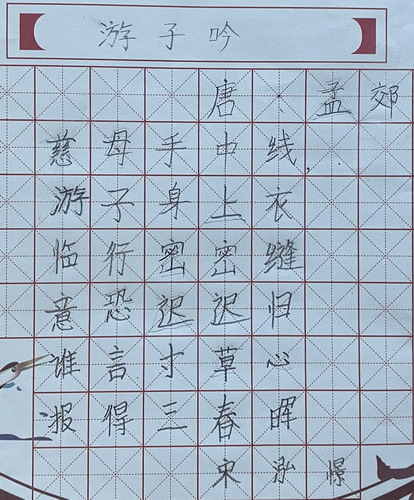 游子吟
唐·孟郊
慈母手中线,
游子身上衣
临行密密缝
意恐迟迟归
谁言寸草心
报得三春晖
宋泓憬